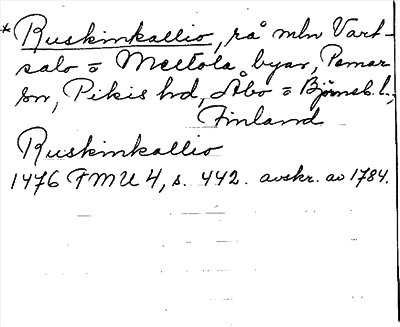 *Ruskinkallio, rå mln Vart-
salo = Mettola byar, Pemar
sn, Pikis hd, Åbo = Björneb. l.,
Finland
Ruskinkallio
1476 FMU 4, s. 442. avskr. av 1784.